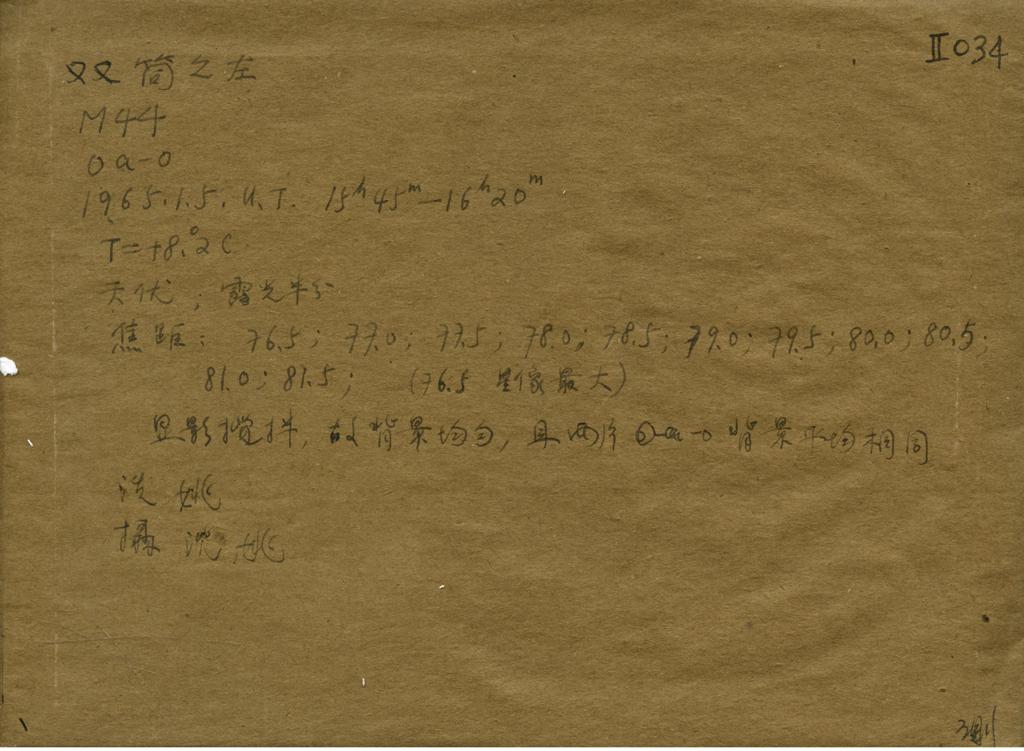 II034
双筒之左
M44
Oa-O
1965.1.5. U.T. 15ʰ45ᵐ-16ʰ20ᵐ
T=+8.°2C
天伏; 露光半分
焦距: 76.5; 77.0; 77.5; 78.0; 78.5; 79.0; 79.5; 80.0; 80.5;
81.0; 81.5; (76.5 星像最大)
显影搅拌, 故背景均匀, 且两片Oa-O背景平均相同
洗 姚
摄 沈 姚